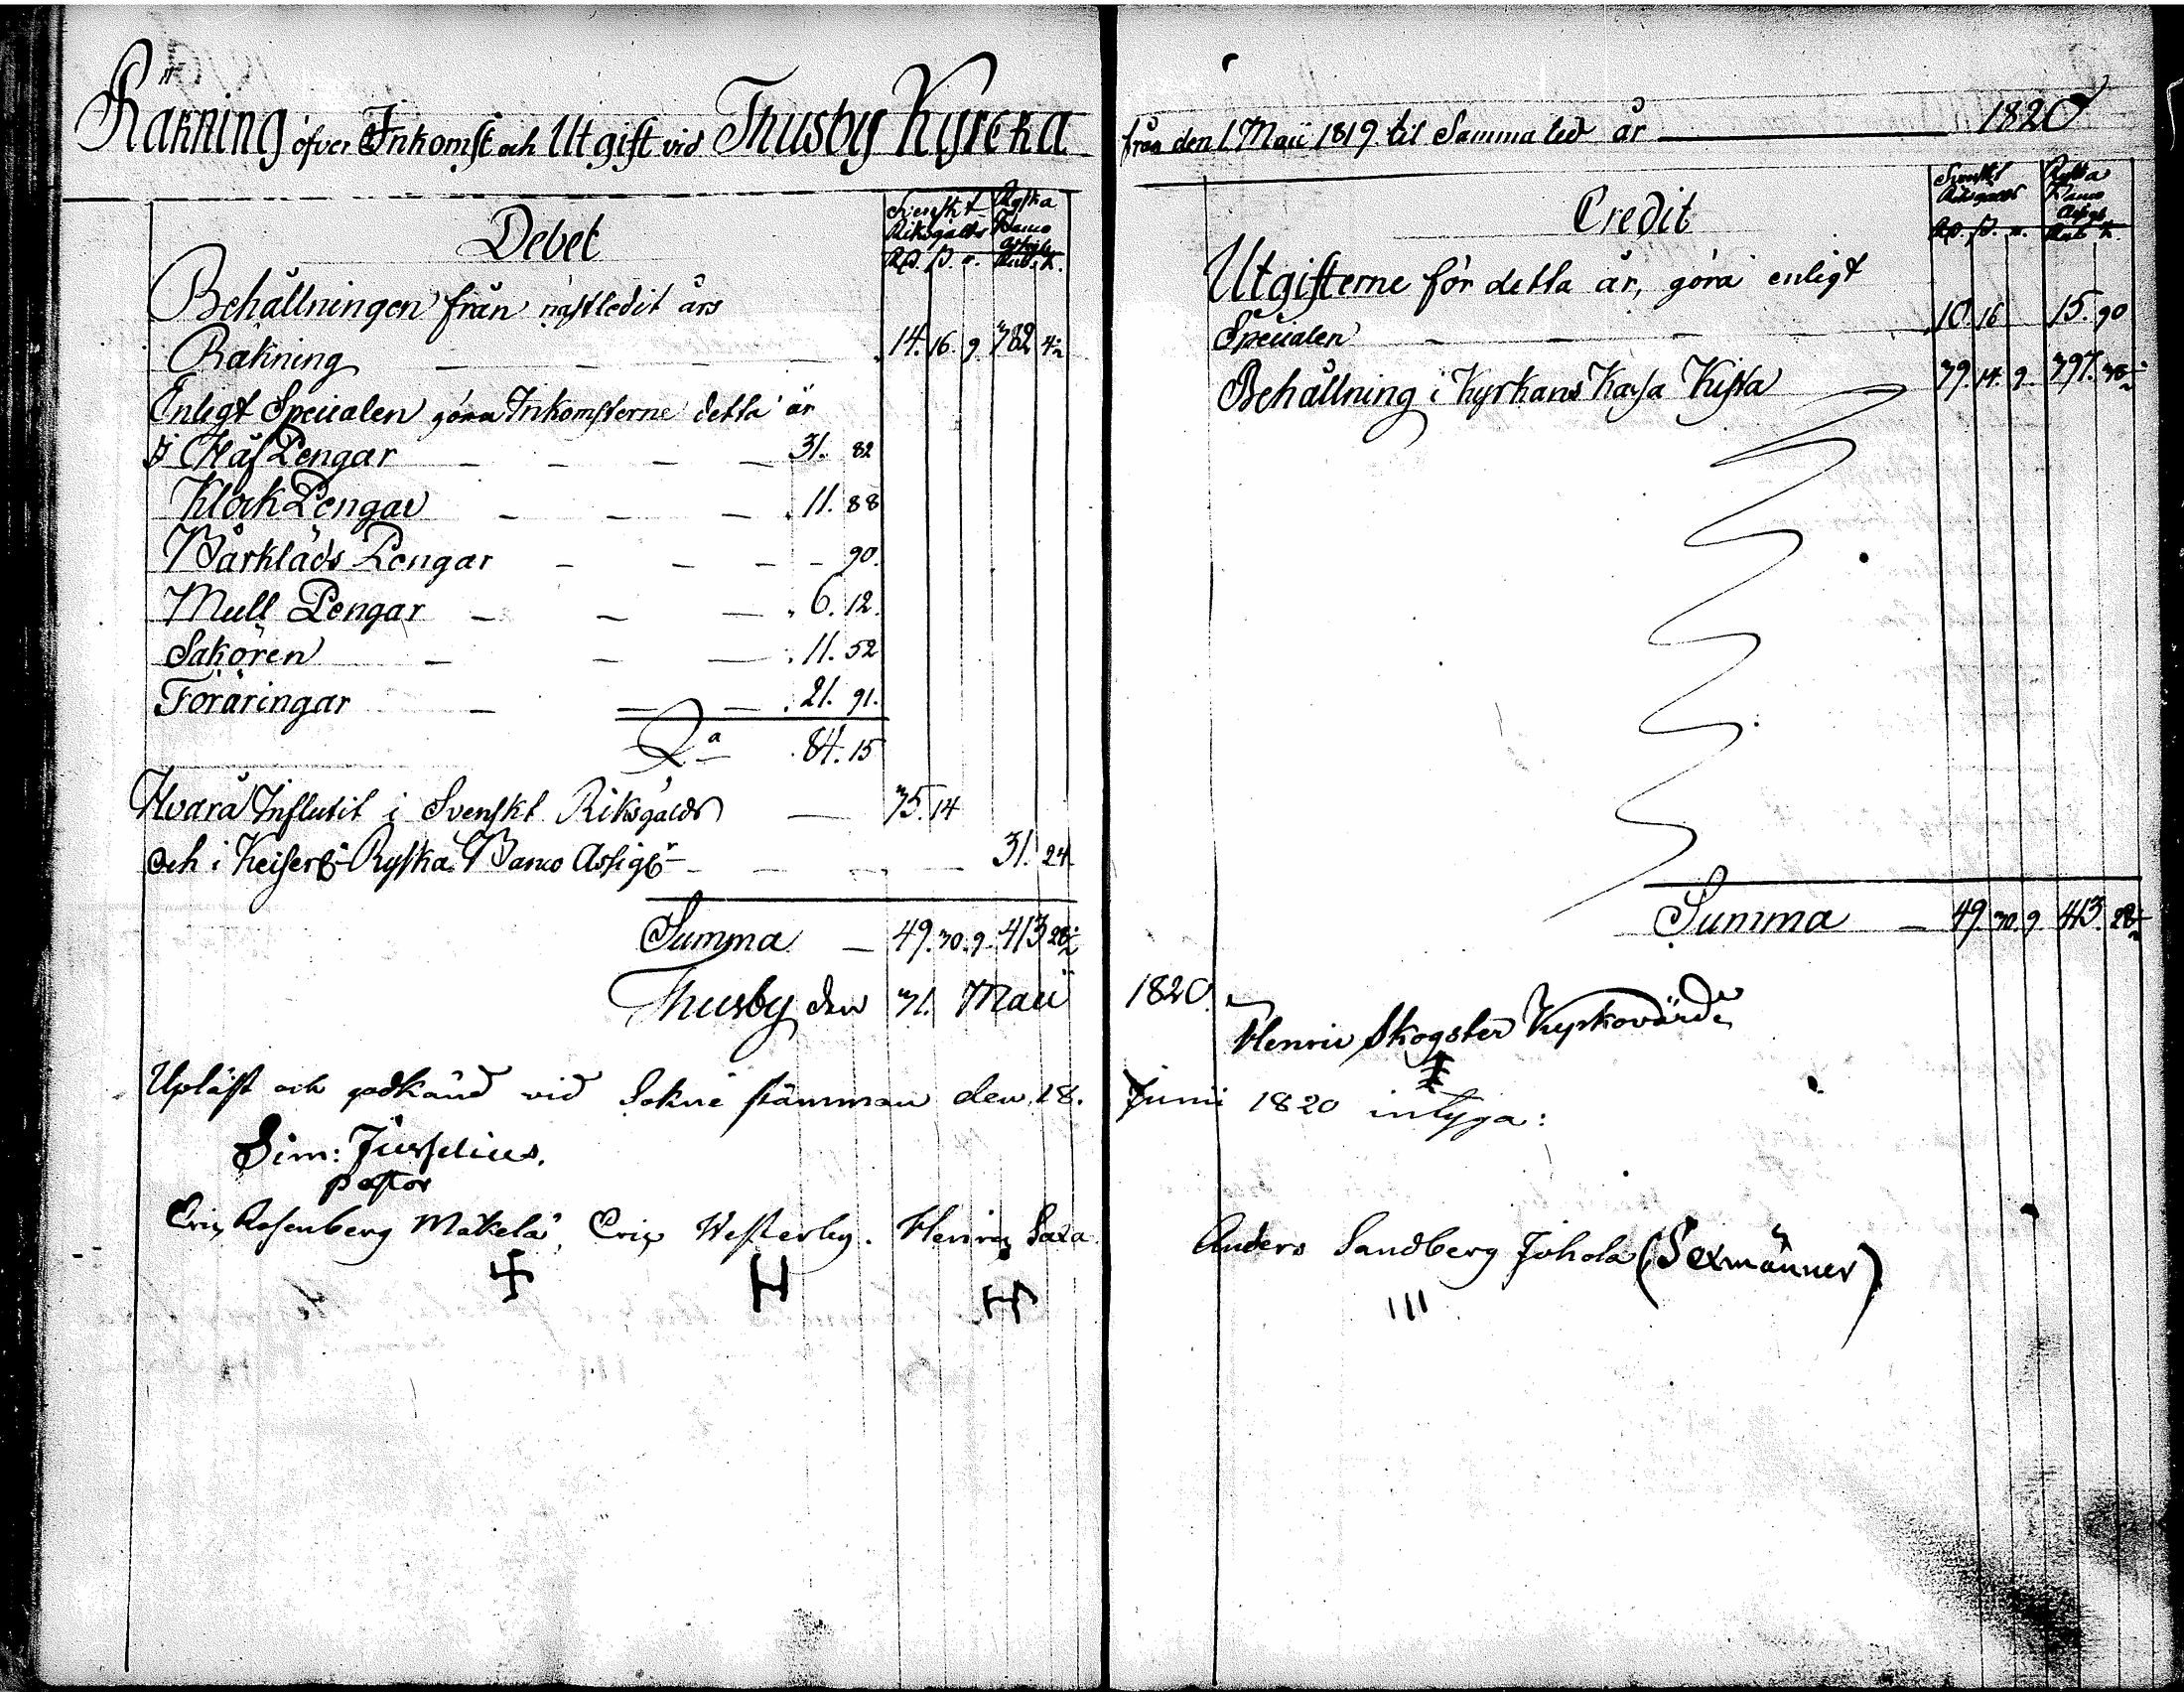 Räkning öfver Inkomst och Utgift vid Thusby Kyrcka
Debet
Svenskt Riksgälds
Ryska Banco Assign.
Rd. ß. r. Rub. K.
Behållningen från nästledit års
Räkning 14. 16. 9. 382 4½
Enligt Specialen göra Inkomsterne detta år
I Håf Pengar 31. 82
Klock Pengar 11. 88
Bårkläds Pengar 90.
Mull Pengar 6. 12.
Sakören 11. 52
Föräringar 21. 91.
84. 15
Hvaraf Influtit i Svenskt Riksgälds 35. 14
och i Keiserl. Ryska Banco Assigr 31. 24
Summa 49. 30. 9. 413 28½
Thusby den 31. Maii
Upläst och godkänd vid Sokne stämman den 18.
Sim: Juselius.
pastor
Eric Rosenberg Mäkelä, Eric Westerby. Henric Saxa.
från den 1 Maii 1819. til Samma tid år 1820
Credit
Svenskt Riksgälds
Ryska Banco Assign.
Rd. ß. r. Rub. K.
Utgifterne för detta år, göra enligt
Specialen 10. 16 15. 90
Behållning i Kyrkans Kassa Kista 39. 14. 9. 397. 38½
Summa 49. 30. 9. 413. 28½
1820.
Henric Skogster Kyrkovärd
Junii 1820 intyga:
Anders Sandberg Johola (Sexmänner)
III